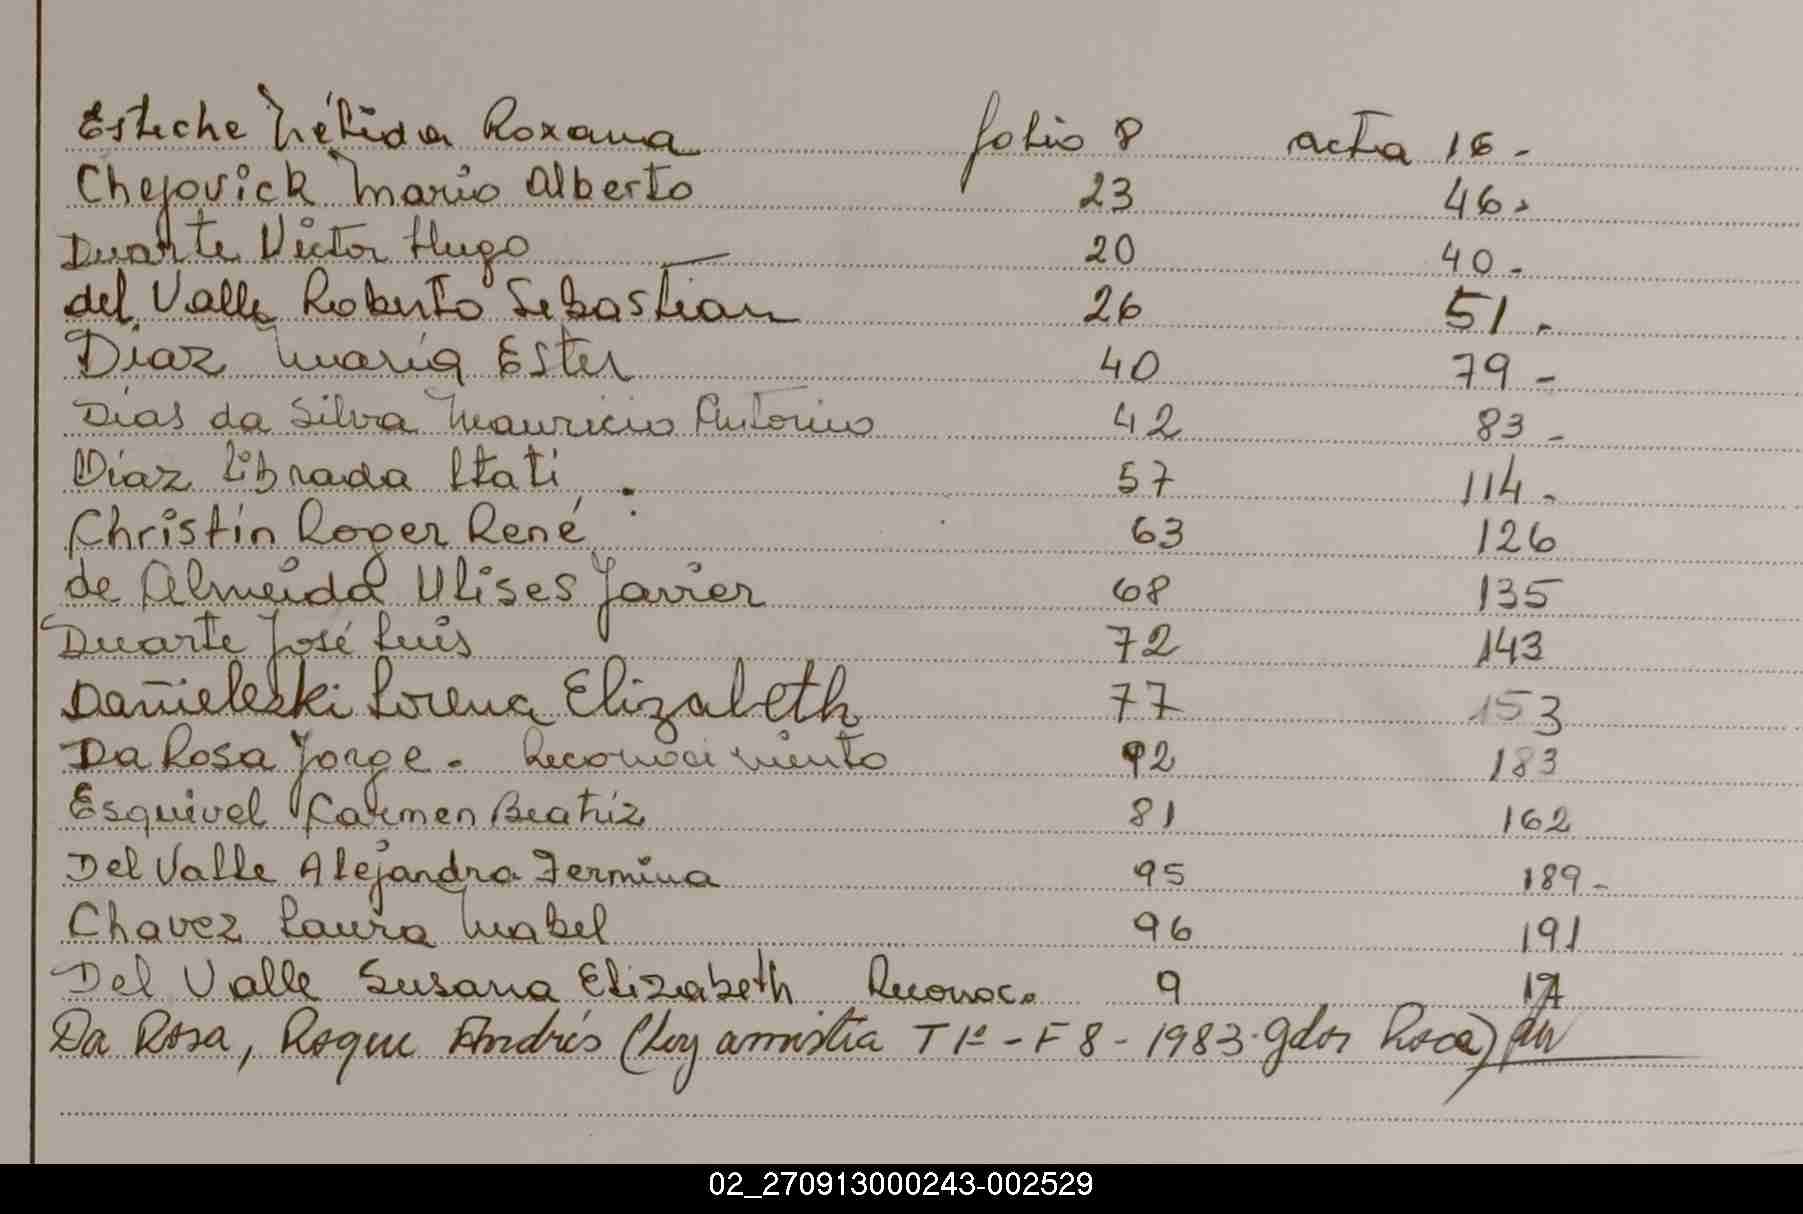 Esteche Nélida Roxana folio 8 acta 16-
Chejovick Mario Alberto 23 46.
Duarte Victor Hugo 20 40-
del Valle Roberto Sebastian 26 51.
Diaz María Ester 40 79-
Dias da Silva Mauricio Antonio 42 83-
Díaz Librada Itati. 57 114-
Christin Roger René 63 126
de Almeida Ulises Javier 68 135
Duarte José Luis 72 143
Danieleski Lorena Elizabeth 77 153
Da Rosa Jorge. Reconocimiento 92 183
Esquivel Carmen Beatríz 81 162
Del Valle Alejandra Fermina 95 189-
Chavez Laura Mabel 96 191
Del Valle Susana Elizabeth Reconoc. 9 17
Da Rosa, Roque Andrés (Ley amistia T 1º - F 8 - 1983. Gdor Roca)
02_270913000243-002529